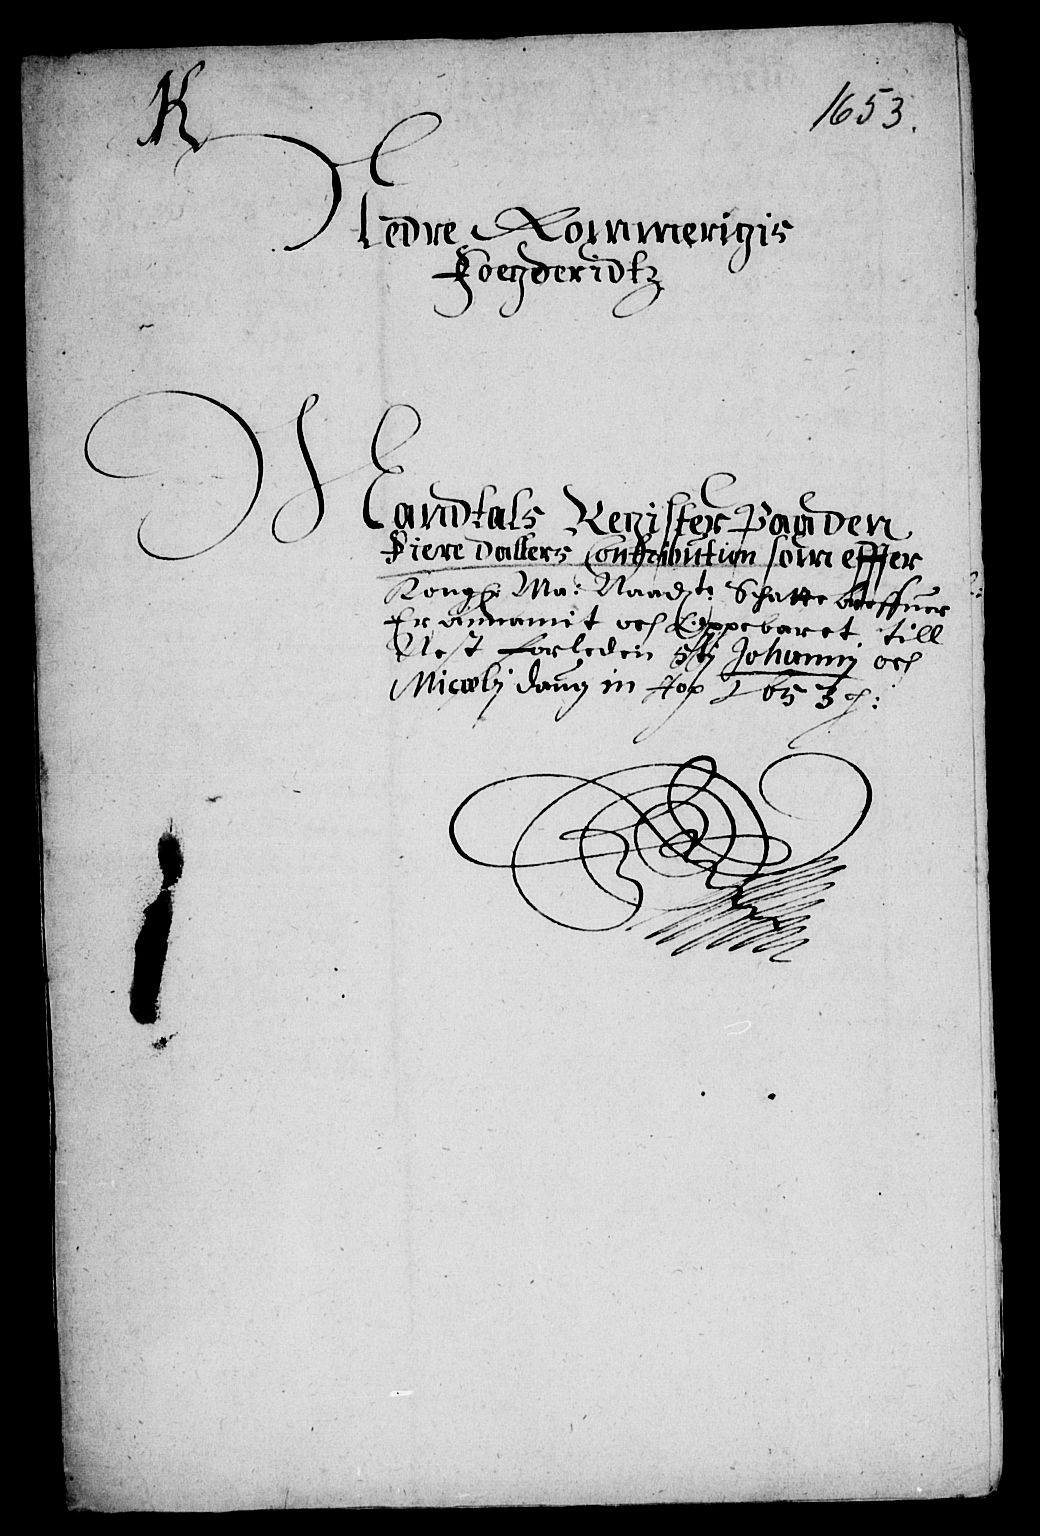 K
1653.
Nedre Rommerigis
Foegderidtz
Mandtals Register Paa den
Fiere dallers Contribution som effter
Kongl: Ma: Naadts: Schatte breffuer
Er annamit och Oppebaret, till
Nest forleden Stj Johannj och
Micælj daug in Aoo 1653 p: